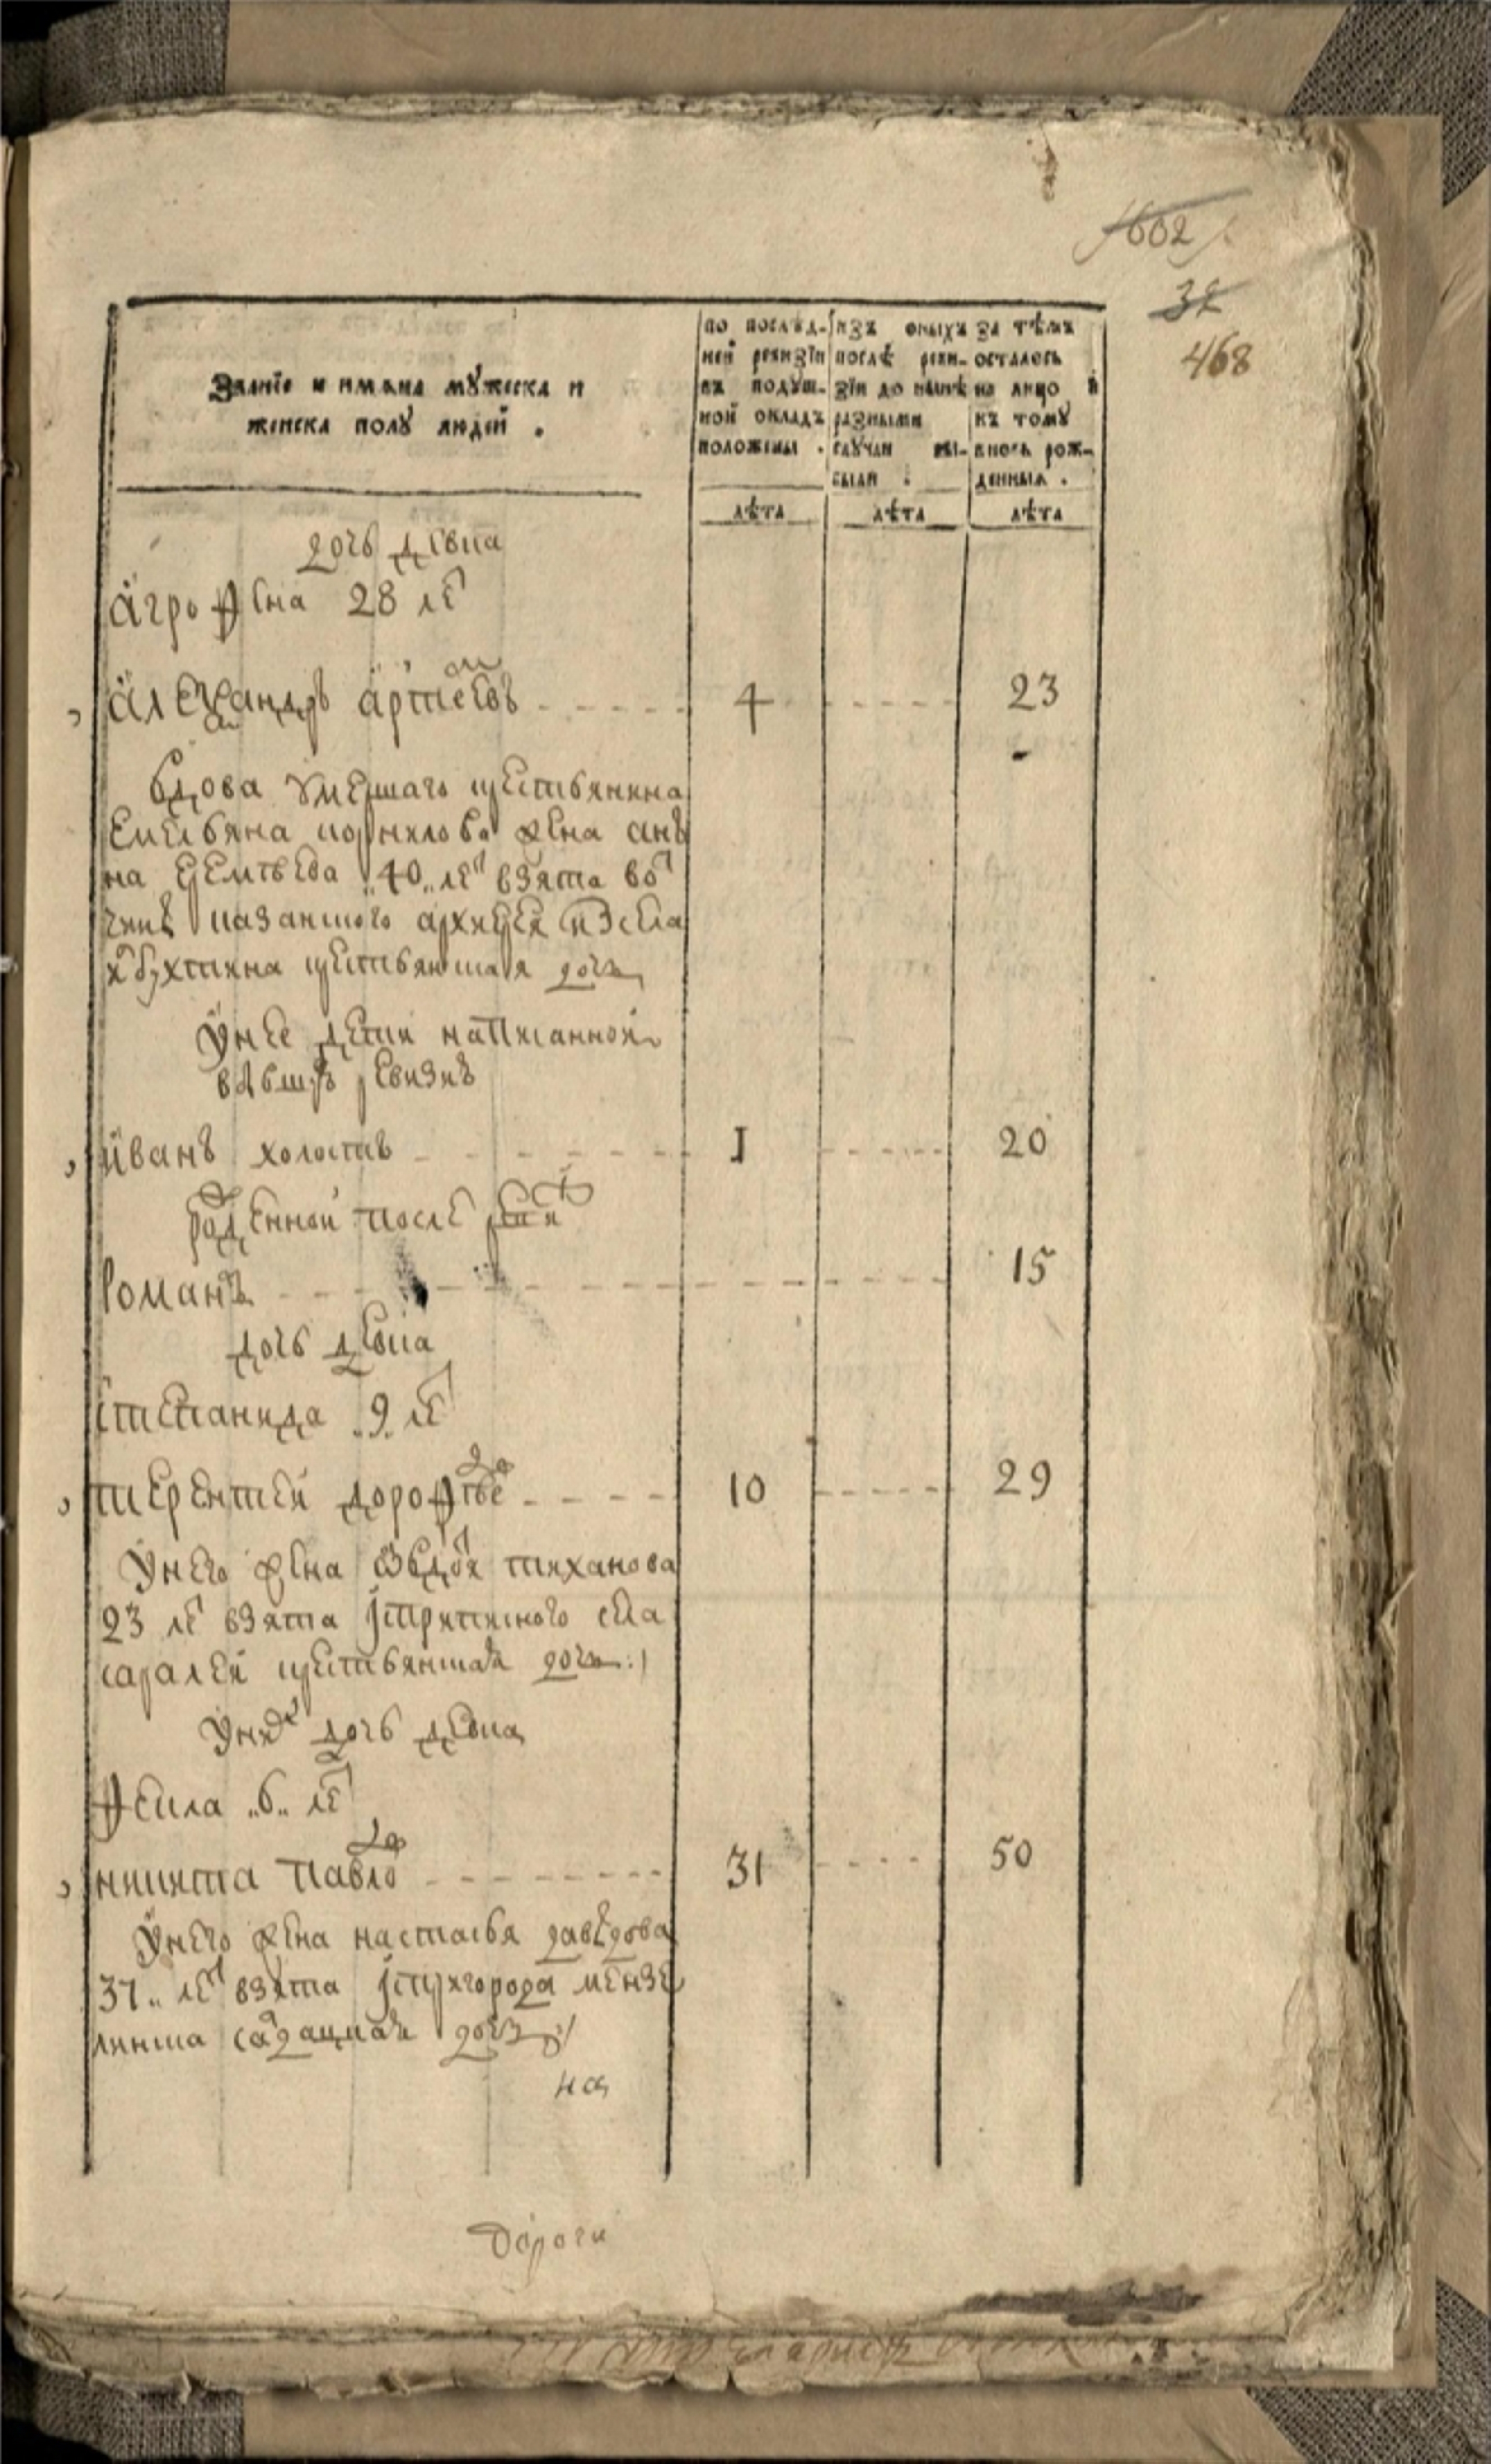 602
32
468
Званїе и имяна мꙋжеска и
женска полꙋ людей .
по послѣд-
ней ревизїи
въ подуш-
ной окладъ
положены .
изъ оныхъ
послѣ реви-
зїи до нынѣ
разными
случаи вы-
были .
за тѣмъ
осталось
на лицо и
къ тому
вновь рож-
денныя .
лѣта лѣта лѣта
дочь девка
агрофена 28 лет
александръ артемевъ 4 23
вдова умершаго крестьянина
емельяна корнилова жена анъ
на 40 лет взята вот
чинъ казанского архиерея из села
крестьянская дочь
у нее дети написанной
в бывшую ревизию
иванъ холостъ 1 20
рожденной после ревизии
романъ 15
дочь девка
степанида 9 лет
терентей дорофеевъ 10 29
у него жена авдотья тиханова
23 лет взята старинного села
саралей крестьянская дочь
у них дочь девка
фекла 6 лет
никита павловъ 31 50
у него жена настасья давыдова
37 лет взята пригорода мензе
линска салдацкая дочь
на
Дороги